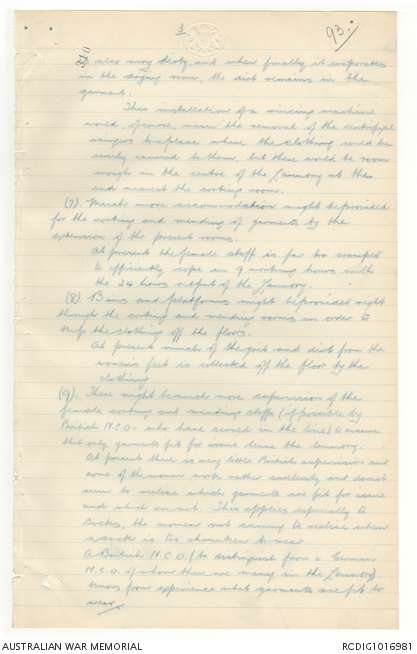 3
93.
310
also very dirty and when finally it evaporates
in the drying room, the dirt remains in the
garment.
The installation of a rinsing machine
would, of course, mean the removal of the centrifugal
wringers to a place where the clothing could be
easily carried to them, but there would be room
enough in the centre of the Laundry at the
end nearest the sorting room.
(7). Much more accommodation might be provided
for the sorting and mending of garments by the
extension of the present rooms.
At present the female staff is far too cramped
to efficiently cope in 9 working hours with
the 24 hours output of the Laundry.
(8). Bins and platforms might be provided right
through the sorting and mending rooms in order to
keep the clothing off the floor.
At present much of the grit and dirt from the
women's feet is collected off the floor by the
clothing.
(9). There might be much more supervision of the
female sorting and mending staffs (if possible by
British N.C.O's who have served in the line) to ensure
that only garments fit for issue leave the laundry.
At present there is very little British supervision and
some of the women work rather carelessly and do not
seem to realise which garments are fit for issue
and which are not. This applies especially to
socks, the women not seeming to realise when
a sock is too shrunken to wear.
A British N.C.O. (to distinguish from a German
N.C.O. of whom there are many in the Laundry)
knows from experience what garments are fit to
wear.
AUSTRALIAN WAR MEMORIAL
RCDIG1016981